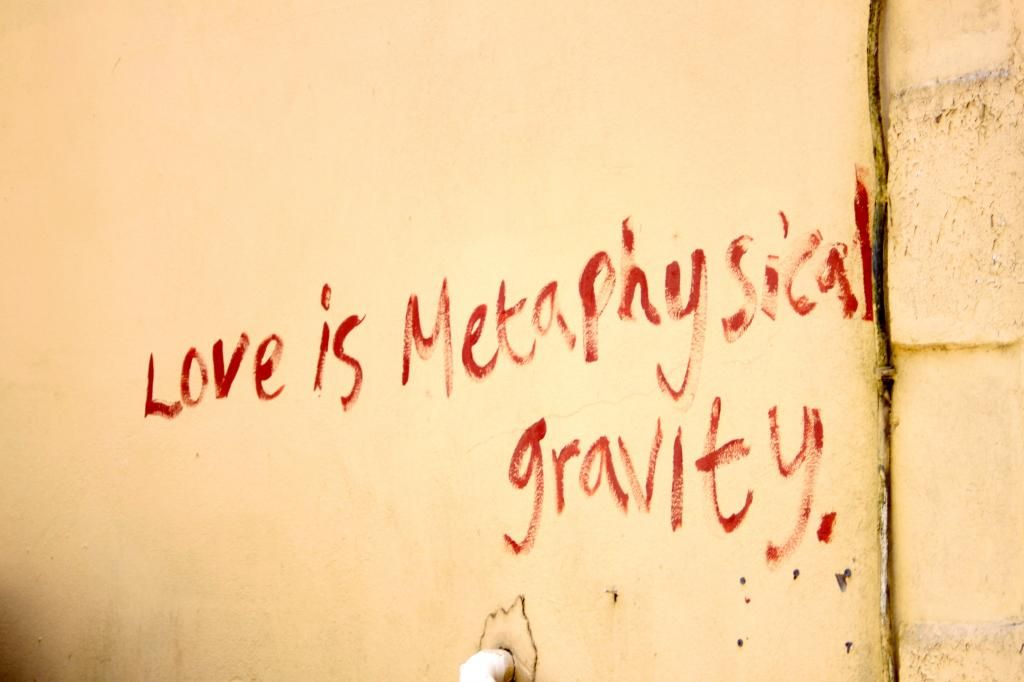 Love is Metaphysical
gravity.